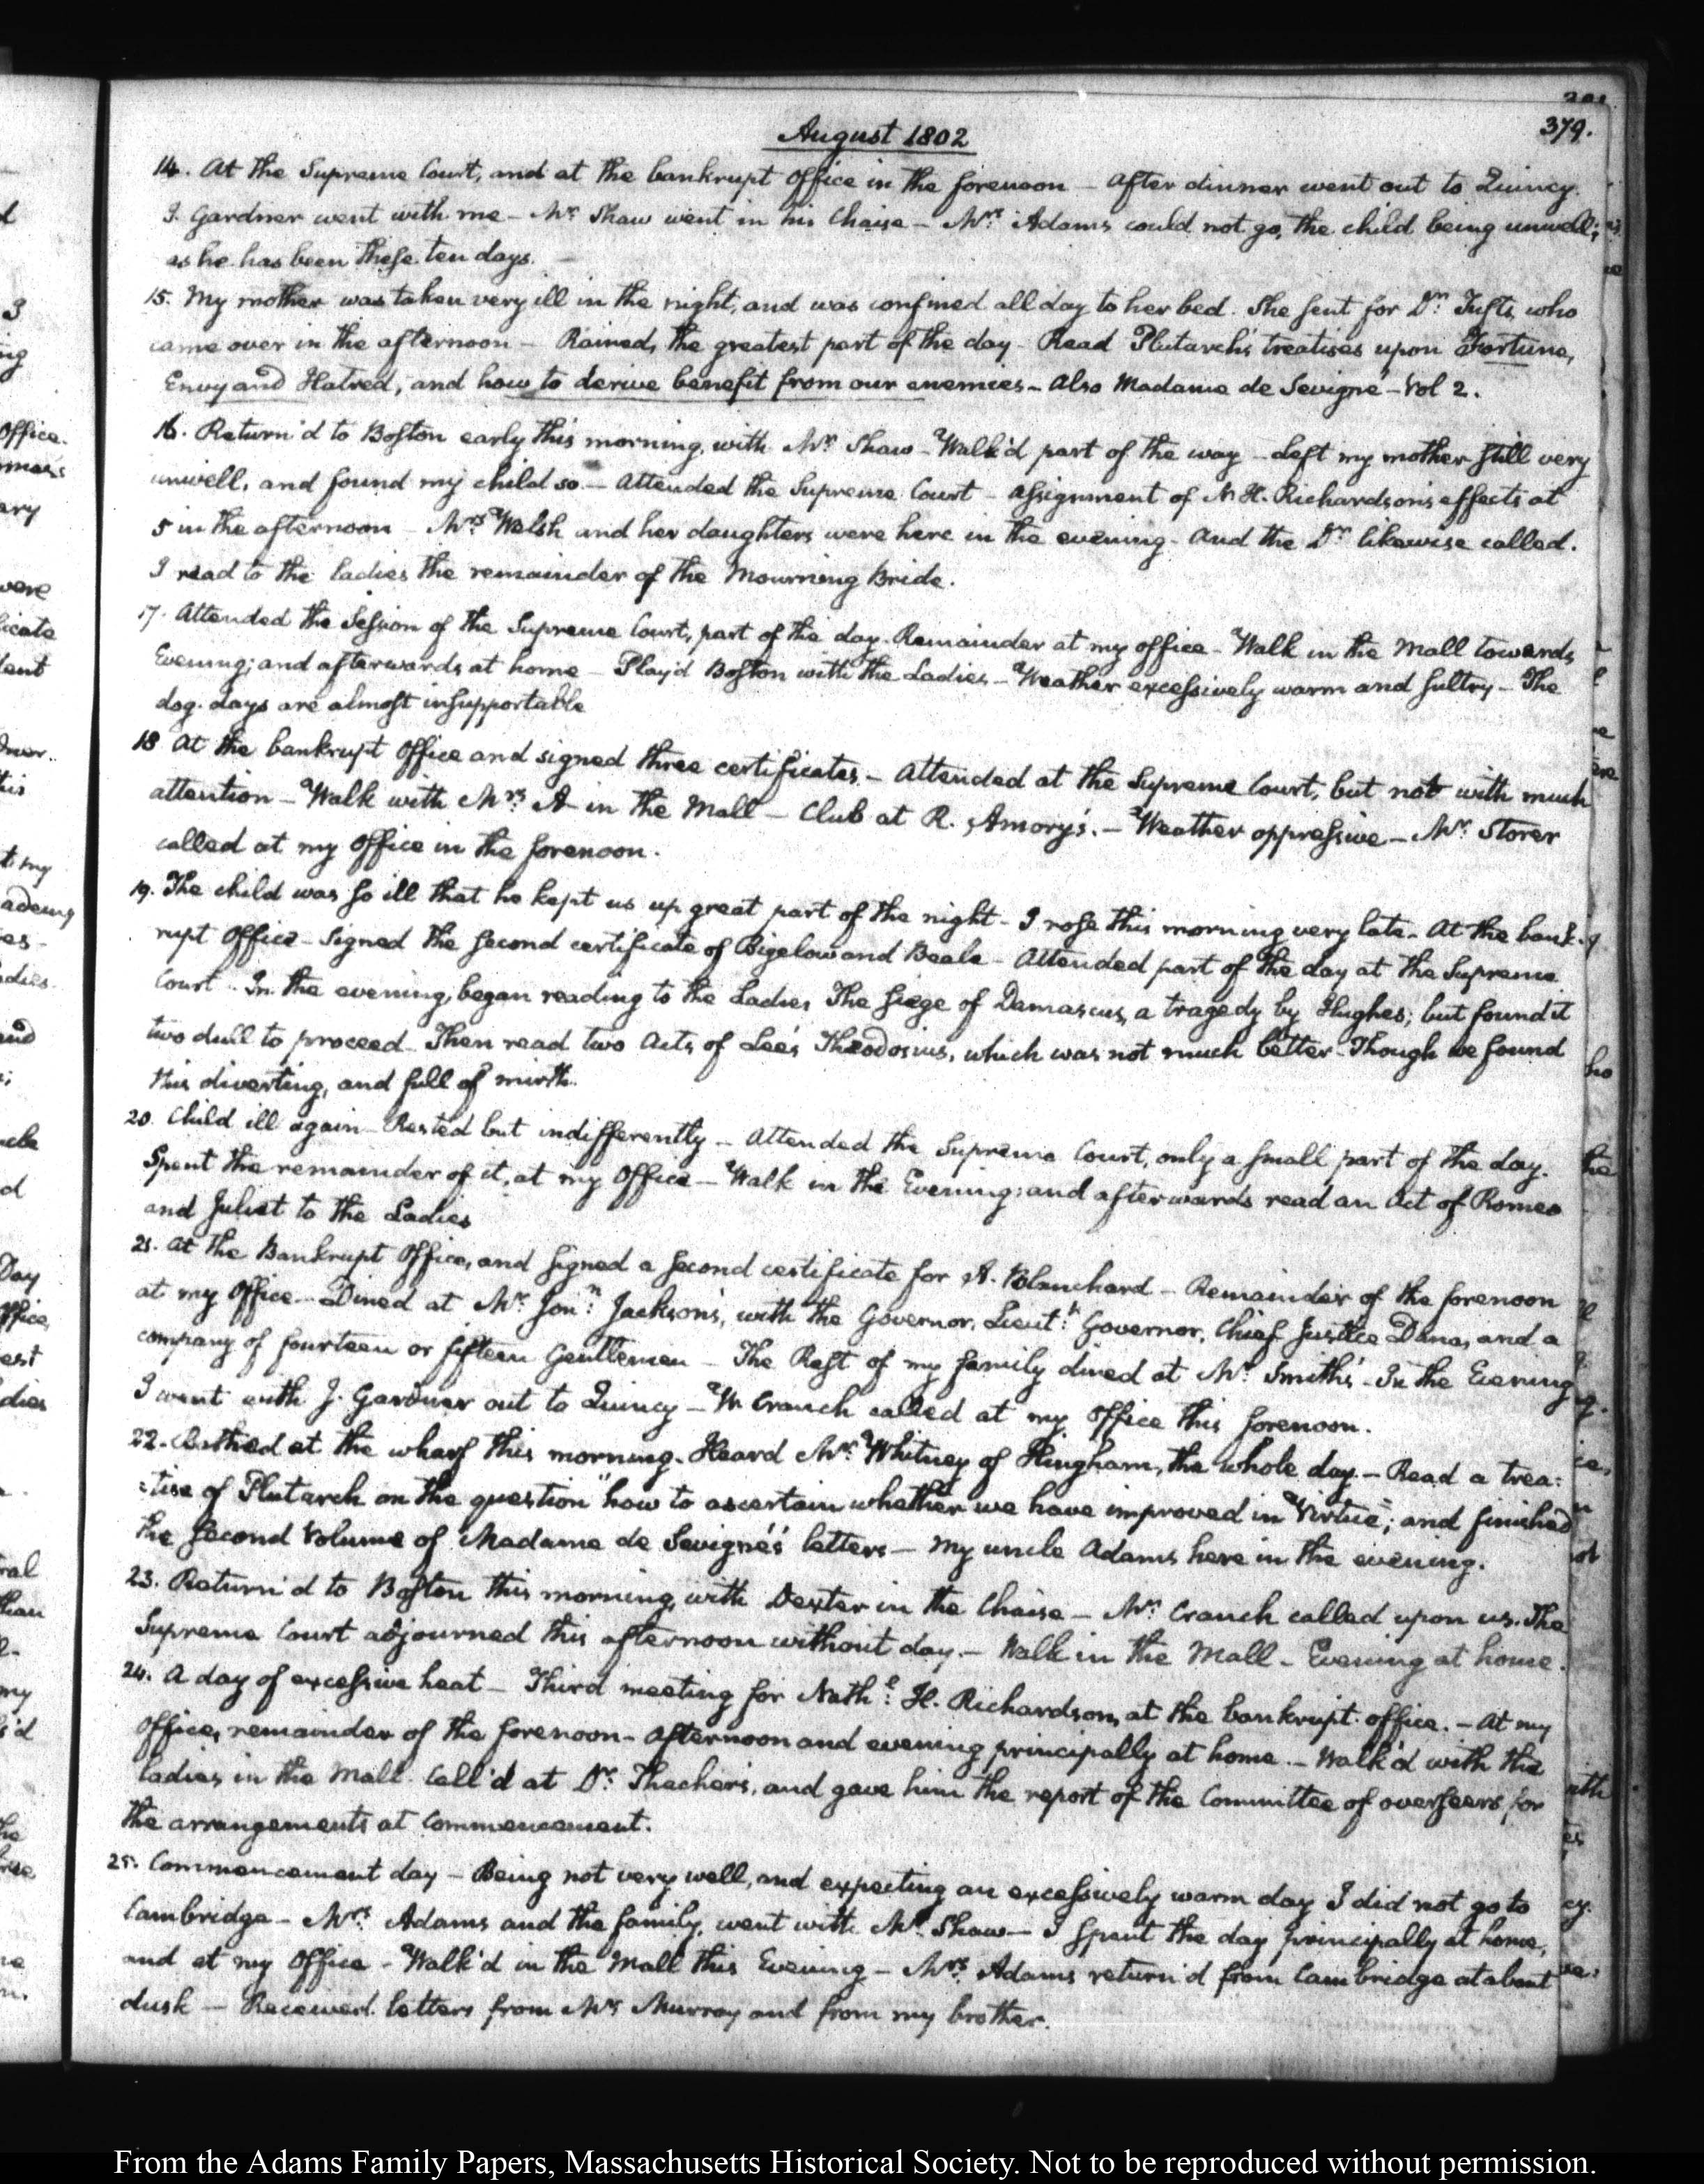 379.
August 1802
14. At the Supreme Court, and at the bankrupt Office in the forenoon – After dinner went out to Quincy.
J. Gardner went with me – Mr: Shaw went in his Chaise – Mrs: Adams could not go, the child being unwell;
as he has been these ten days. –
15. My mother was taken very ill in the night, and was confined all day to her bed. She sent for Dr: Tufts, who
came over in the afternoon – Rained, the greatest part of the day – Read Plutarch's treatises upon Fortune,
Envy and Hatred, and how to derive benefit from our enemies – Also Madame de Sevigné – Vol 2.
16. Return'd to Boston early this morning, with Mr: Shaw – Walk'd part of the way – Left my mother still very
unwell, and found my child so – Attended the Supreme Court – Assignment of N. H. Richardson's effects at
5 in the afternoon – Mrs: Welsh and her daughters were here in the evening – And the Dr: likewise called.
I read to the Ladies the remainder of the Mourning Bride.
17. Attended the Session of the Supreme Court, part of the day. Remainder at my office – Walk in the Mall towards
Evening; and afterwards at home – Play'd Boston with the Ladies – Weather excessively warm and sultry – The
dog-days are almost insupportable
18 At the bankrupt Office and signed three certificates – Attended at the Supreme Court, but not with much
attention – Walk with Mrs: A– in the Mall – Club at R. Amory's. – Weather oppressive – Mr: Storer
called at my Office in the forenoon.
19. The child was so ill that he kept us up great part of the night – I rose this morning very late – At the bank-
rupt Office – Signed the second certificate of Bigelow and Beale – Attended part of the day at the Supreme
Court – In the evening began reading to the Ladies The Siege of Damascus, a tragedy by Hughes; but found it
two dull to proceed – Then read two Acts of Lee's Theodosius, which was not much better – Though we found
this diverting, and full of mirth.
20. Child ill again – Rested but indifferently – Attended the Supreme Court, only a small part of the day.
Spent the remainder of it, at my Office – Walk in the Evening; and afterwards read an Act of Romeo
and Juliet to the Ladies
21. At the Bankrupt Office, and signed a second certificate for A. Blanchard – Remainder of the forenoon
at my Office – Dined at Mr: Jonn: Jackson's, with the Governor, Lieutt: Governor, Chief Justice Dana, and a
company of fourteen or fifteen Gentlemen – The Rest of my family dined at Mr: Smith's – In the Evening
I went with J. Gardner out to Quincy – W. Cranch called at my Office this forenoon.
22. Bathed at the wharf this morning. Heard Mr: Whitney of Hingham, the whole day – Read a trea:
:tise of Plutarch on the question "how to ascertain whether we have improved in Virtue"; and finished
the second Volume of Madame de Sevigné's letters – My uncle Adams here in the evening.
23. Return'd to Boston this morning, with Dexter in the Chaise – Mr: Cranch called upon us. The
Supreme Court adjourned this afternoon without day. – Walk in the Mall – Evening at home.
24. A day of excessive heat – Third meeting for Nathl: H. Richardson, at the bankrupt office. – At my
Office, remainder of the forenoon – Afternoon and evening principally at home. – Walk'd with the
Ladies in the Mall. Call'd at Dr: Thacher's, and gave him the report of the Committee of overseers, for
the arrangements at Commencement.
25. Commencement day – Being not very well, and expecting an excessively warm day I did not go to
Cambridge – Mrs: Adams and the family, went with Mr: Shaw – I spent the day principally at home,
and at my Office – Walk'd in the Mall this Evening – Mrs: Adams return'd from Cambridge at about
dusk – Received letters from Mr: Murray and from my brother.
From the Adams Family Papers, Massachusetts Historical Society. Not to be reproduced without permission.